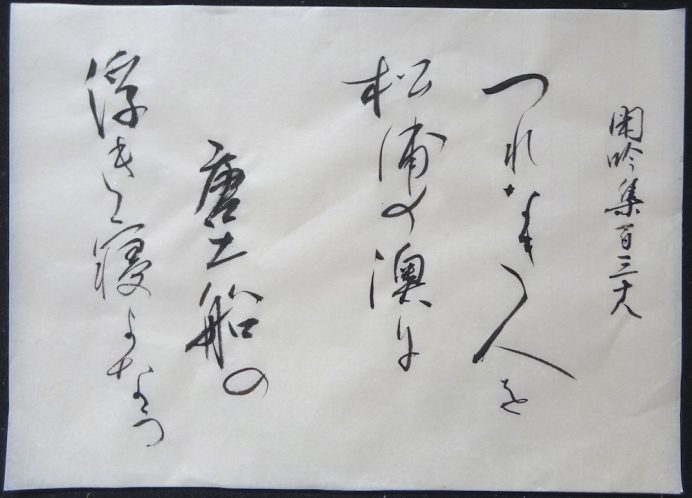 閑吟集百三十八
つれなき人を
松浦の澳に
唐土船の
浮き寝よなう